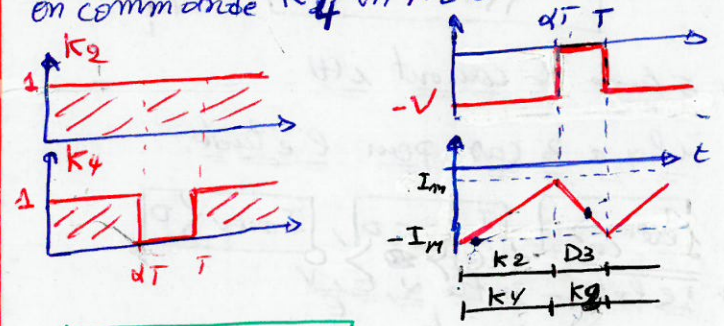 on commande K4
K2
1
K4
1
αT T
αT T
-V
t
Im
-Im
K2 D3
K4 K2